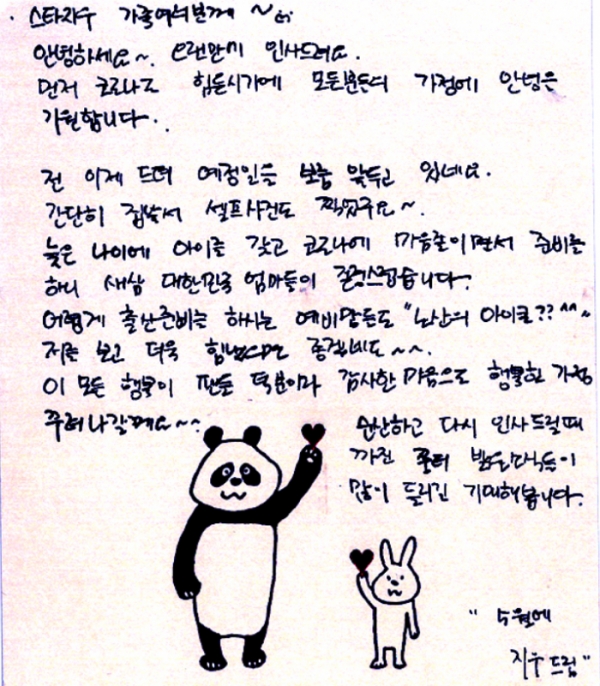 스타지우 가족여러분께~
안녕하세요~. 오랜만에 인사드려요.
먼저 코로나로 힘든시기에 모든분들의 가정에 안녕을
기원합니다.
전 이제 드뎌 예정일을 보름 앞두고 있네요.
간단히 집에서 셀프사진도 찍었구요~.
늦은 나이에 아이를 갖고 코로나에 마음졸이면서 준비를
하니 새삼 대한민국 엄마들이 존경스럽습니다.
어렵게 출산준비를 하시는 예비맘들도 "노산의 아이콘?? ^^~
저를 보고 더욱 힘냈으면 좋겠네요~~.
이 모든 행복이 팬들 덕분이라 감사한 마음으로 행복한 가정
꾸려나갈께요~~
순산하고 다시 인사드릴때
까진 밝은소식들이
많이 들리길 기대해봅니다.
"5월에
지우드림"